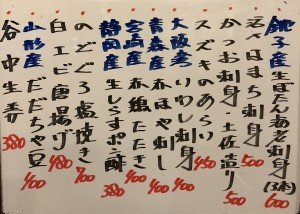 銚子産生ぼたん海老(3本) 600
活〆はまち刺身 500
かつお刺身・土佐造り 500
スズキのあらい 450
大阪産 いわし刺身 400
青森産 赤ほやさし 400
宮崎産 赤鶏たたき 380
静岡産 生しらすポン酢 400
のどぐろ塩焼き
白エビ唐揚げ 480
山形産だだちゃ豆 400
谷中生姜 380